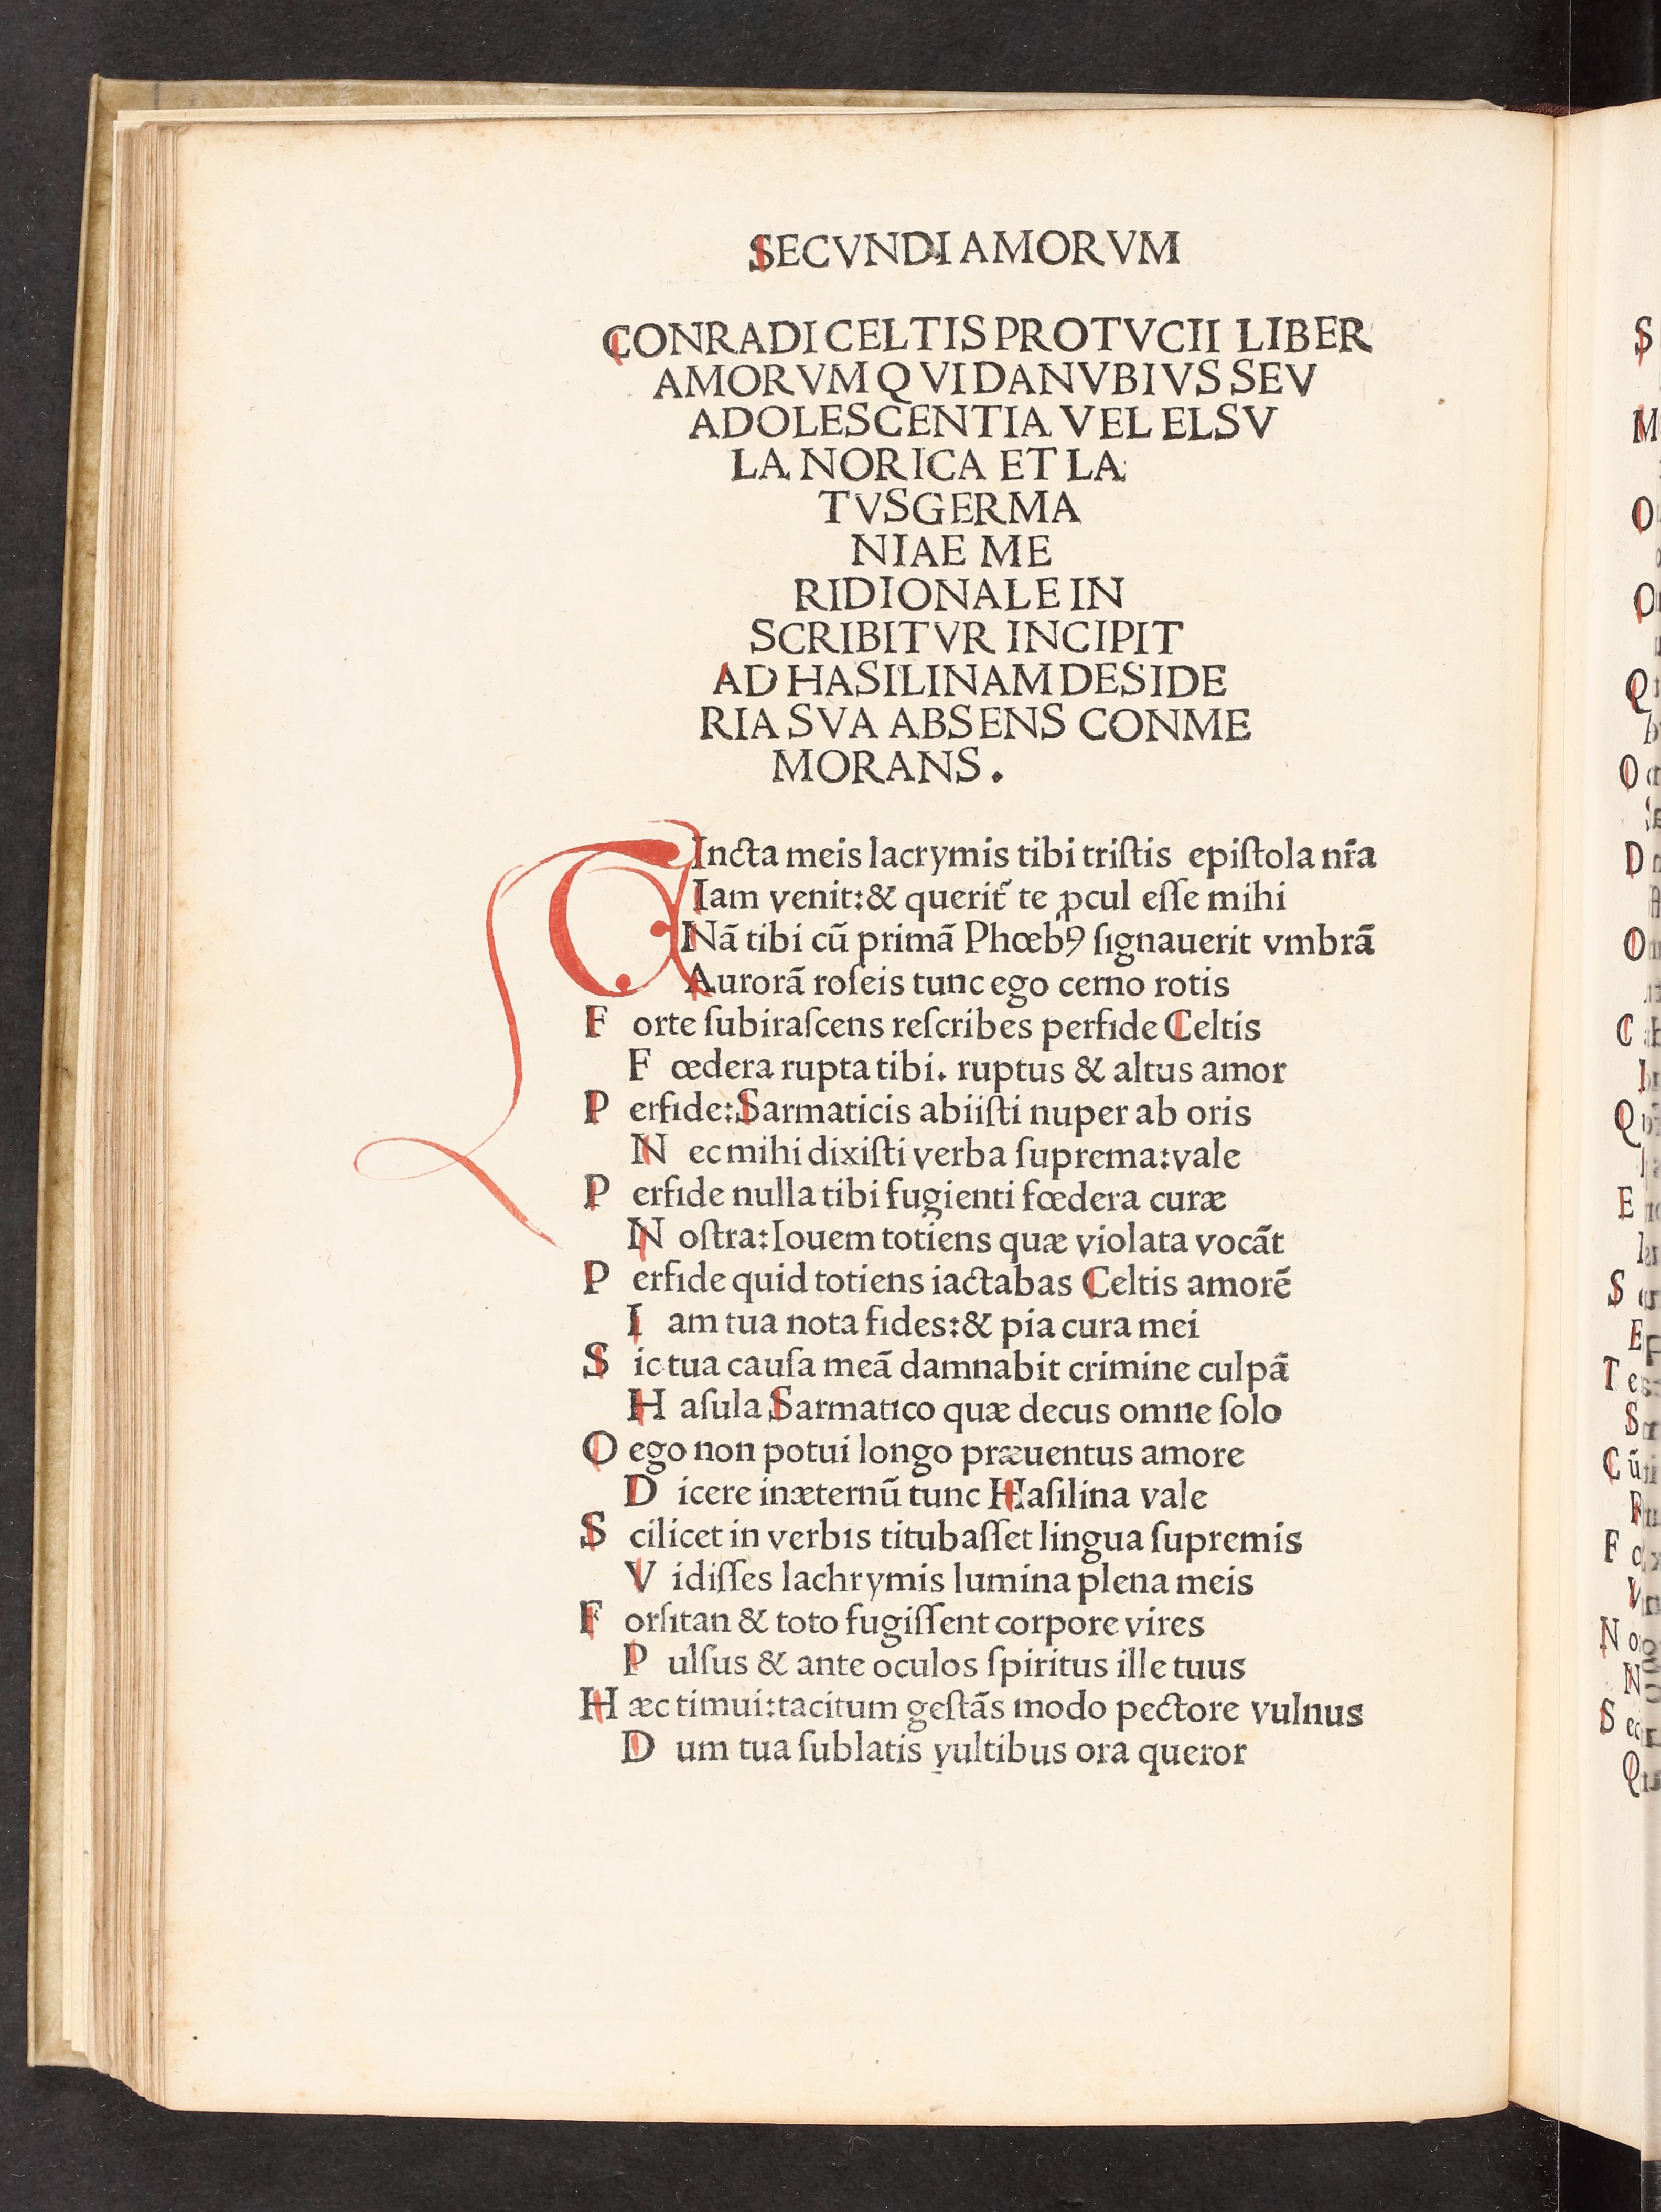 SECVNDI AMORVM
CONRADI CELTIS PROTVCII LIBER
AMORVM QVI DANVBIVS SEV
ADOLESCENTIA VEL ELSV
LA NORICA ET LA
TVS GERMA
NIAE ME
RIDIONALE IN
SCRIBITVR INCIPIT
AD HASILINAM DESIDE
RIA SVA ABSENS CONME
MORANS.
TIncta meis lacrymis tibi triſtis epiſtola nr̃a
Iam venit:& querit᷑ te ꝓcul eſſe mihi
Nã tibi cũ primã Phœbꝰ ſignauerit vmbrã
Aurorã roſeis tunc ego cerno rotis
F orte ſubiraſcens reſcribes perfide Celtis
F œdera rupta tibi. ruptus & altus amor
P erfide:Sarmaticis abiiſti nuper ab oris
N ec mihi dixiſti verba ſuprema:vale
P erfide nulla tibi fugienti fœdera curæ
N oſtra:Iouem totiens quæ violata vocãt
P erfide quid totiens iactabas Celtis amorẽ
I am tua nota fides:& pia cura mei
S ic tua cauſa meã damnabit crimine culpã
H aſula Sarmatico quæ decus omne ſolo
O ego non potui longo præuentus amore
D icere inæternũ tunc Haſilina vale
S cilicet in verbis titubaſſet lingua ſupremis
V idiſſes lachrymis lumina plena meis
F orſitan & toto fugiſſent corpore vires
P ulſus & ante oculos ſpiritus ille tuus
H æc timui:tacitum geſtãs modo pectore vulnus
D um tua ſublatis vultibus ora queror